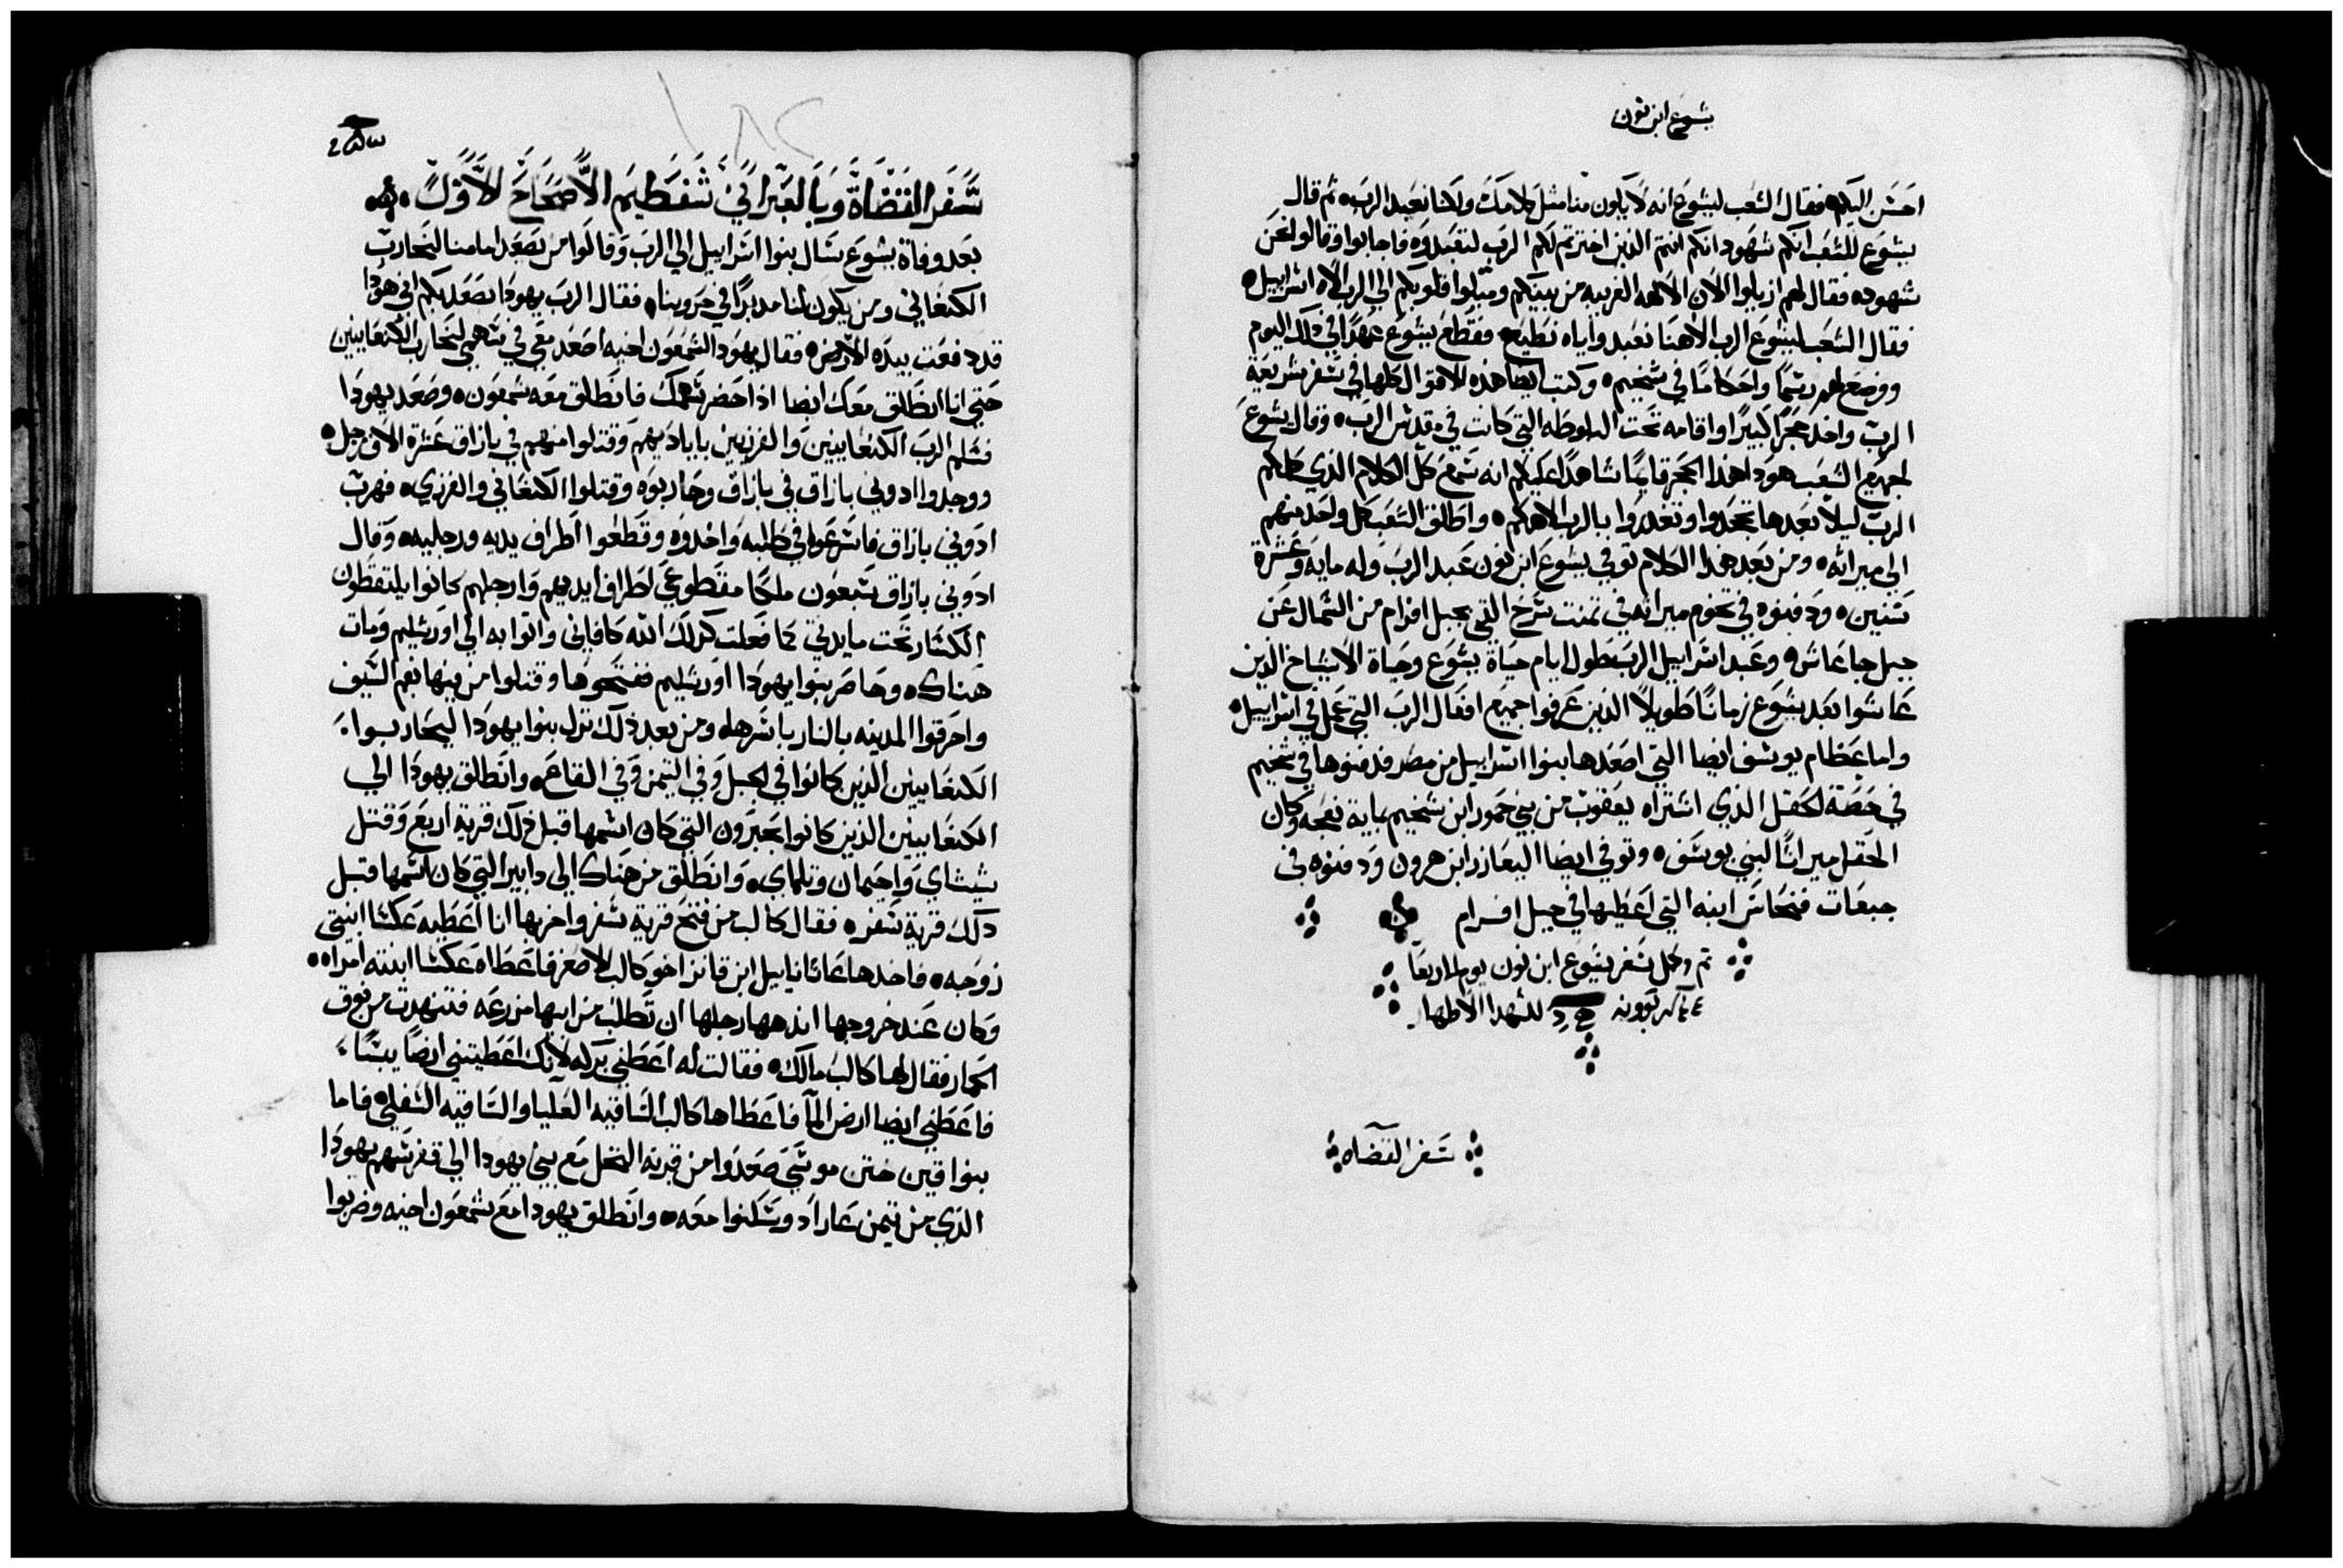 يشوع ابن نون
احسن اليكم فقال الشعب ليشوع انه لا يكون منا مثل كلامك ولكنا نعبد الرب ثم قال
يشوع للشعب انكم شهود انكم انتم الذين اخترتم لكم الرب لتعبدوه فاجابوا وقالوا نحن
شهود فقال لهم ازيلوا الان الالهه الغريبه من بينكم وميلوا قلوبكم الي الرب الاه اسراييل
فقال الشعب ليشوع الرب الاهنا نعبد واياه نطيع فقطع يشوع عهدا في ذلك اليوم
ووضع لهم رسما واحكاما في شخيم وكتب ايضا هذه الاقوال كلها في سفر شريعة
الرب واخد حجرا كبيرا واقامه تحت البلوطه التي كانت في مقدس الرب وقال يشوع
لجميع الشعب هودا هذا الحجر قايما شاهدا عليكم انه سمع كل الكلام الذي كلمكم
الرب ليلا بعدها تجحدوا وتغدروا بالرب الاهكم واطلق الشعب كل واحد منهم
الي ميراثه ومن بعد هذا الكلام توفي يشوع ابن نون عبد الرب وله مايه وعشرة
سنين ودفنوه في تخوم ميراثه في تمنت سرخ التي بجبل افرام من الشمال عن
جبل جاعاش وعبد اسراييل الرب طول ايام حياة يشوع وحياة الاشياخ الذين
عاشوا بعد يشوع زمانا طويلا الذين عرفوا جميع افعال الرب التي عمل في اسراييل
واما عظام يوسف ايضا التي اصعدها بنوا اسراييل من مصر فدفنوها في شخيم
في حصة الحقل الذي اشتراه يعقوب من بني حمور ابن شخيم بماية نعجه وكان
الحقل ميراثا لبني يوسف وتوفي ايضا اليعازر ابن هرون ودفنوه في
جبعات فنحاس ابنه التي اعطيها في جبل افرام
تم وكمل سفر يشوع ابن نون يوم الاربعا
للشهدا الاطهار
سفر القضاه
سفر القضاة وبالعبراني شفطيم الاصحاح الاول
بعد وفاة يشوع سال بنوا اسراييل الي الرب وقالوا من يصعد امامنا لنحارب
الكنعاني ومن يكون لنا مدبرا في حروبنا فقال الرب يهودا يصعد بكم اني هودا
قد دفعت بيده الارض فقال يهودا لشمعون اخيه اصعد معي في سهمي لنحارب الكنعانيين
حتي انا انطلق معك ايضا اذا حضر سهمك فانطلق معه شمعون وصعد يهودا
فسلم الرب الكنعانيين والفرزيين باياديهم وقتلوا منهم في بازاق عشرة الاف رجل
ووجدوا ادوني بازاق في بازاق وحاربوه وقتلوا الكنعاني والفرزي فهرب
ادوني بازاق فاسرعوا في طلبه واخدوه وقطعوا اطراف يديه ورجليه وقال
ادوني بازاق سبعون ملكا مقطوعي اطراف ايديهم وارجلهم كانوا يلتقطون
الكسار تحت مايدتي كما فعلت كذلك الله كافاني واتوا به الي اورشليم ومات
هناك وحاصر بنوا يهودا اورشليم ففتحوها وقتلوا من فيها بفم السيف
واحرقوا المدينه بالنار باسرها ومن بعد ذلك نزل بنوا يهودا ليحاربوا
الكنعانيين الذين كانوا في الجبل وفي التيمن وفي القاع وانطلق يهودا الي
الكنعانيين الذين كانوا بحبرون التي كان اسمها قبل ذلك قرية اربع وقتل
شيشاي واحيمان وتلماي وانطلق من هناك الي دابير التي كان اسمها قبل
ذلك قرية سفر فقال كالب من فتح قرية سفر واخربها انا اعطيه عكسا ابنتي
زوجه فاخدها عاثانيايل ابن قانز اخو كالب الاصغر فاعطاه عكسا ابنته امراه
وكان عند خروجها اندهها رجلها ان تطلب من ابيها مزرعه فتنهدت من فوق
الحمار فقال لها كالب مالك فقالت له اعطني بركه لانك اعطيتني ارضا يبسا
فاعطني ايضا ارض الما فاعطاها كالب الساقيه العليا والساقيه السفلي فاما
بنوا قين ختن موسي صعدوا من قرية النخل مع بني يهودا الي قفر سهم يهودا
الذي من تيمن عاراد وسكنوا معه وانطلق يهودا مع شمعون اخيه وضربوا